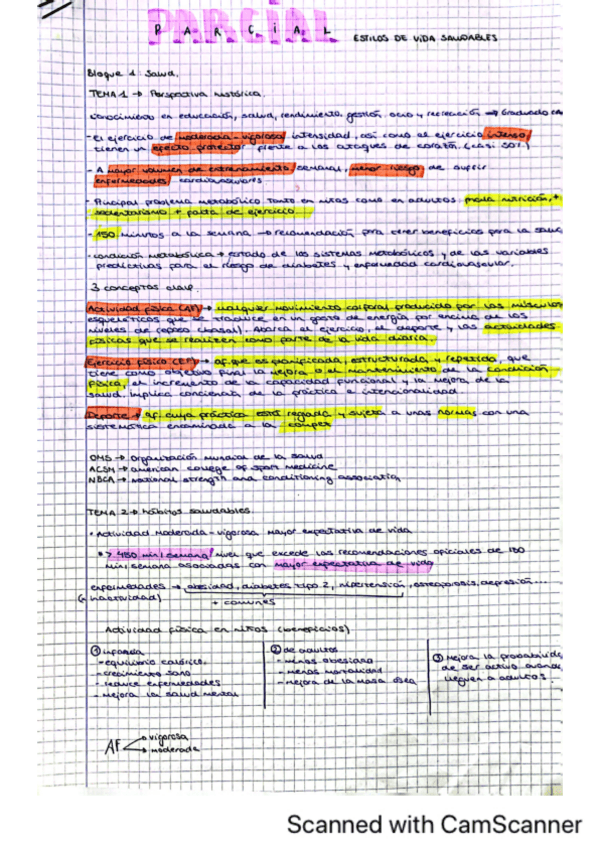 PARCIAL ESTILOS DE VIDA SALUDABLES
Bloque 1 Salud.
TEMA 1 → Perspectiva histórica.
conocimientos en educación, salud, rendimiento, gestión, ocio y recreación → Graduado
- El ejercicio de moderada-vigorosa intensidad, así como el ejercicio intenso
tienen un efecto protector frente a los ataques de corazón. (casi 50%)
- A mayor volumen de entrenamiento semanal, menor riesgo de sufrir
enfermedades cardiovasculares
- Principal problema metabólico tanto en niños como en adultos: mala nutrición, +
sedentarismo + falta de ejercicio.
- 150 minutos a la semana → recomendación para obtener beneficios para la salud
- condición metabólica → estado de los sistemas metabólicos y de las variables
predictivas para el riesgo de diabetes y enfermedad cardiovascular.
3 conceptos clave.
Actividad física (AF) → cualquier movimiento corporal producido por los músculos
esqueléticos que se traduce en un gasto de energía por encima de los
niveles de reposo (basal). Abarca el ejercicio, el deporte y las actividades
físicas que se realizan como parte de la vida diaria.
Ejercicio físico (EF) → af. que es planificada, estructurada y repetida, que
tiene como objetivo final la mejora o el mantenimiento de la condición
física, el incremento de la capacidad funcional y la mejora de la
salud. Implica conciencia de la práctica e intencionalidad.
Deporte → af. cuya práctica está reglada y sujeta a unas normas con una
sistemática encaminada a la compet
OMS → Organización mundial de la salud
ACSM → american college of sport medicine
NSCA → national strength and conditioning association
TEMA 2 → hábitos saudables.
• Actividad moderada-vigorosa mayor expectativa de vida
• > 450 min/semana nivel que excede las recomendaciones oficiales de 150
min/semana asociadas con mayor expectativa de vida
enfermedades → obesidad, diabetes tipo 2, hipertensión, osteoporosis, depresión...
(x inactividad)
+ comunes
Actividad física en niños (beneficios)
① infancia
- equilibrio calórico.
- crecimiento sano
- reduce enfermedades
- mejora la salud mental
② de adultos
- menos obesidad
- menos morbilidad
- mejora de la masa ósea
③ mejora la probabilidad
de ser activo cuando
lleguen a adultos.
AF
vigorosa
moderada
Scanned with CamScanner